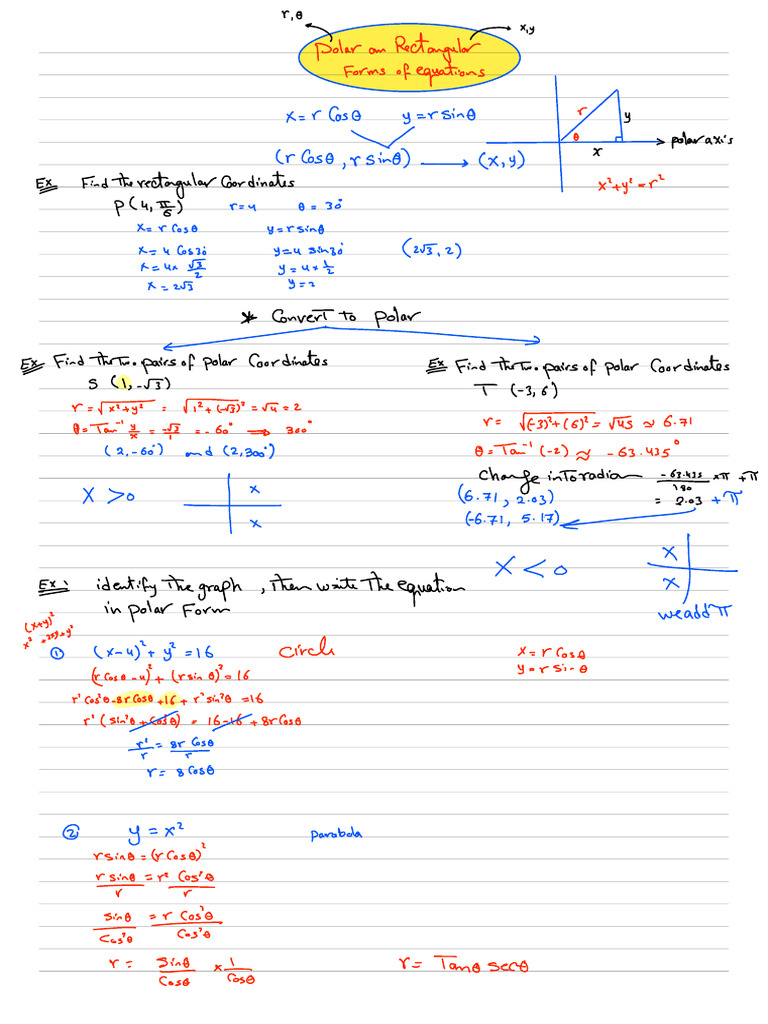 r, θ
x, y
Polar an Rectangular
Forms of equations
x = r Cosθ   y = r sinθ
(r Cosθ, r sinθ) → (x, y)
r
y
θ
x
polar axis
x² + y² = r²
Ex Find the rectangular Coordinates
P(4, π/6)   r = 4   θ = 30°
x = r Cosθ   y = r sinθ
x = 4 Cos30   y = 4 sin30°   (2√3, 2)
x = 4 × √3/2   y = 4 × 1/2
x = 2√3   y = 2
* Convert to polar
Ex Find the Two pairs of polar Coordinates
S (1, -√3)
r = √x²+y² = √1²+(-√3)² = √4 = 2
θ = Tan⁻¹ y/x = -√3/1 = -60° ⇒ 300°
(2, -60°) and (2, 300°)
x > 0
x
x
Ex Find the Two pairs of polar Coordinates
T (-3, 6)
r = √(-3)²+(6)² = √45 ≈ 6.71
θ = Tan⁻¹(-2) ≈ -63.435°
change into radian -63.435/180 × π + π
(6.71, 2.03) = 2.03 + π
(-6.71, 5.17)
x < 0
x
x
we add π
Ex: identify the graph, then write the equation
in polar Form
(x+y)²
x² + 2xy + y²
① (x-4)² + y² = 16   Circle
x = r Cosθ
y = r sinθ
(r Cosθ - 4)² + (r sinθ)² = 16
r² Cos²θ - 8r Cosθ + 16 + r² sin²θ = 16
r² (sin²θ + Cos²θ) = 16 - 16 + 8r Cosθ
r²/r = 8r Cosθ/r
r = 8 Cosθ
② y = x²   parabola
r sinθ = (r Cosθ)²
r sinθ/r = r² Cos²θ/r
sinθ/Cos²θ = r Cos²θ/Cos²θ
r = sinθ/Cosθ × 1/Cosθ   r = Tanθ secθ